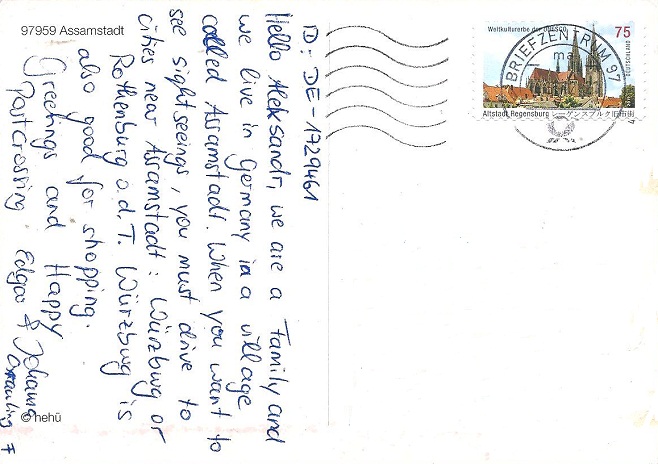 97959 Assamstadt
ID: DE-1729461
Hello Aleksandr, we are a family and
we live in Germany in a village
called Assamstadt. When you want to
see sightseeings, you must drive to
cities near Assamstadt: Würzburg or
Rothenburg o.d.T. Würzburg is
also good for shopping.
Greetings and Happy
Postcrossing Edgar &
© hehü
Weltkulturerbe der UNESCO
75
DEUTSCHLAND
Altstadt Regensburg レーゲンスブルク旧市街
BRIEFZENTRUM 97